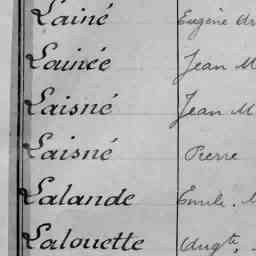 Lainé Eugène
Lainée Jean M
Laisné Jean M
Laisné Pierre
Lalande Emile
Lalouette Augte